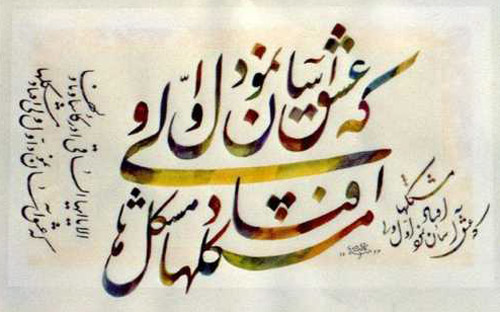 که عشق آسان نمود اول ولی
افتاد مشکلها
که عشق آسان نمود اول ولی
افتاد مشکلها
الا یا ایها الساقی ادر کاسا و ناولها
که عشق آسان نمود اول ولی افتاد
مشکلها